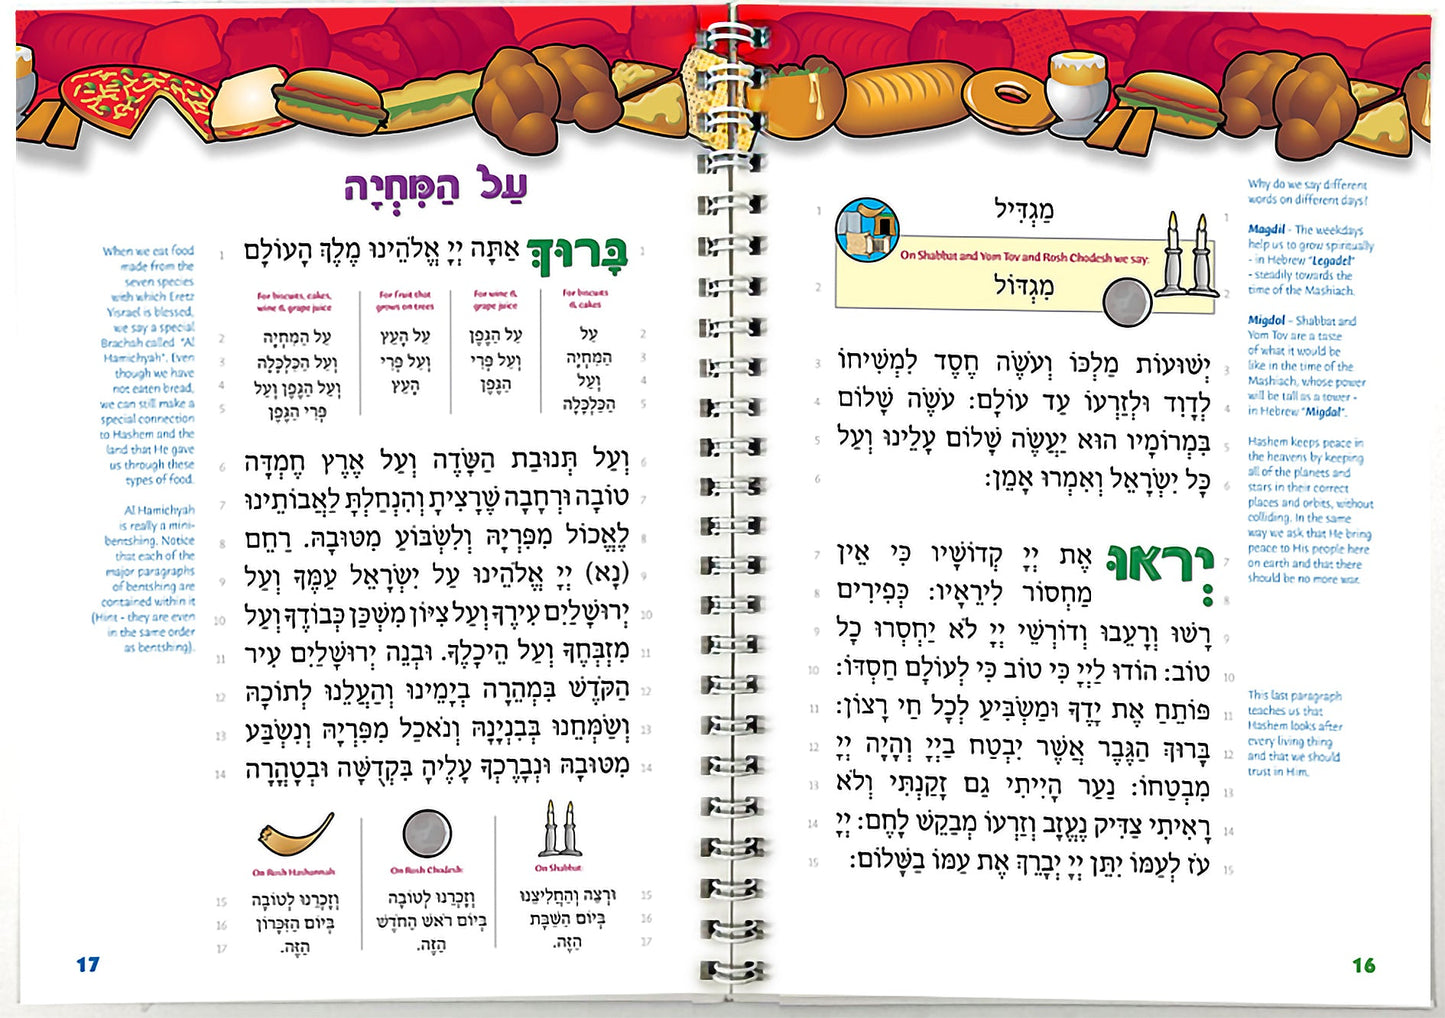 מַגְדִּיל
On Shabbat and Yom Tov and Rosh Chodesh we say:
מִגְדּוֹל
יְשׁוּעוֹת מַלְכּוֹ וְעֹשֶׂה חֶסֶד לִמְשִׁיחוֹ
לְדָוִד וּלְזַרְעוֹ עַד עוֹלָם: עֹשֶׂה שָׁלוֹם
בִּמְרוֹמָיו הוּא יַעֲשֶׂה שָׁלוֹם עָלֵינוּ וְעַל
כָּל יִשְׂרָאֵל וְאִמְרוּ אָמֵן:
יְראוּ אֶת יְיָ קְדוֹשָׁיו כִּי אֵין
מַחְסוֹר לִירֵאָיו: כְּפִירִים
רָשׁוּ וְרָעֵבוּ וְדוֹרְשֵׁי יְיָ לֹא יַחְסְרוּ כָל
טוֹב: הוֹדוּ לַיְיָ כִּי טוֹב כִּי לְעוֹלָם חַסְדּוֹ:
פּוֹתֵחַ אֶת יָדֶךָ וּמַשְׂבִּיעַ לְכָל חַי רָצוֹן:
בָּרוּךְ הַגֶּבֶר אֲשֶׁר יִבְטַח בַּיְיָ וְהָיָה יְיָ
מִבְטַחוֹ: נַעַר הָיִיתִי גַם זָקַנְתִּי וְלֹא
רָאִיתִי צַדִּיק נֶעֱזָב וְזַרְעוֹ מְבַקֵּשׁ לָחֶם: יְיָ
עֹז לְעַמּוֹ יִתֵּן יְיָ יְבָרֵךְ אֶת עַמּוֹ בַשָּׁלוֹם:
Why do we say different
words on different days?
Magdil - The weekdays
help us to grow spiritually
- in Hebrew "Legadel"
- steadily towards the
time of the Mashiach.
Migdol - Shabbat and
Yom Tov are a taste
of what it would be
like in the time of the
Mashiach, whose power
will be tall as a tower -
in Hebrew "Migdal".
Hashem keeps peace in
the heavens by keeping
all of the planets and
stars in their correct
places and orbits, without
colliding. In the same
way we ask that He bring
peace to His people here
on earth and that there
should be no more war.
This last paragraph
teaches us that
Hashem looks after
every living thing
and that we should
trust in Him.
16
עַל הַמִּחְיָה
בָּרוּךְ אַתָּה יְיָ אֱלֹהֵינוּ מֶלֶךְ הָעוֹלָם
For biscuits
& cakes
עַל
הַמִּחְיָה
וְעַל
הַכַּלְכָּלָה
For wine &
grape juice
עַל הַגֶּפֶן
וְעַל פְּרִי
הַגֶּפֶן
For fruit that
grows on trees
עַל הָעֵץ
וְעַל פְּרִי
הָעֵץ
For biscuits, cakes,
wine & grape juice
עַל הַמִּחְיָה
וְעַל הַכַּלְכָּלָה
וְעַל הַגֶּפֶן וְעַל
פְּרִי הַגֶּפֶן
וְעַל תְּנוּבַת הַשָּׂדֶה וְעַל אֶרֶץ חֶמְדָּה
טוֹבָה וּרְחָבָה שֶׁרָצִיתָ וְהִנְחַלְתָּ לַאֲבוֹתֵינוּ
לֶאֱכוֹל מִפִּרְיָהּ וְלִשְׂבּוֹעַ מִטּוּבָהּ. רַחֵם
(נָא) יְיָ אֱלֹהֵינוּ עַל יִשְׂרָאֵל עַמֶּךָ וְעַל
יְרוּשָׁלַיִם עִירֶךָ וְעַל צִיּוֹן מִשְׁכַּן כְּבוֹדֶךָ וְעַל
מִזְבְּחֶךָ וְעַל הֵיכָלֶךָ. וּבְנֵה יְרוּשָׁלַיִם עִיר
הַקֹּדֶשׁ בִּמְהֵרָה בְיָמֵינוּ וְהַעֲלֵנוּ לְתוֹכָהּ
וְשַׂמְּחֵנוּ בְּבִנְיָנָהּ וְנֹאכַל מִפִּרְיָהּ וְנִשְׂבַּע
מִטּוּבָהּ וּנְבָרֶכְךָ עָלֶיהָ בִּקְדֻשָּׁה וּבְטָהֳרָה
On Shabbat:
וּרְצֵה וְהַחֲלִיצֵנוּ
בְּיוֹם הַשַּׁבָּת
הַזֶּה.
On Rosh Chodesh:
וְזָכְרֵנוּ לְטוֹבָה
בְּיוֹם רֹאשׁ הַחֹדֶשׁ
הַזֶּה.
On Rosh Hashannah
וְזָכְרֵנוּ לְטוֹבָה
בְּיוֹם הַזִּכָּרוֹן
הַזֶּה.
When we eat food
made from the
seven species
with which Eretz
Yisrael is blessed,
we say a special
Brachah called "Al
Hamichyah". Even
though we have
not eaten bread,
we can still make a
special connection
to Hashem and the
land that He gave
us through these
types of food.
Al Hamichyah
is really a mini-
bentshing. Notice
that each of the
major paragraphs
of bentshing are
contained within it
(Hint - they are even
in the same order
as bentshing).
17